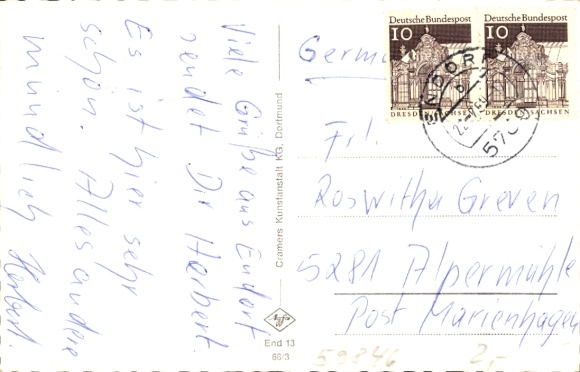 Viele Grüße aus Endorf
sendet Dir Herbert.
Es ist hier sehr
schön. Alles andere
mündlich Herbert
Cramers Kunstanstalt KG, Dortmund
Agfa
End 13
66/3
Deutsche Bundespost
10
DRESDEN SACHSEN
Deutsche Bundespost
10
DRESDEN SACHSEN
ENDORF
Germany
Frl.
Roswitha Greven
5281 Alpermühle
Post Marienhagen
59846
2,-